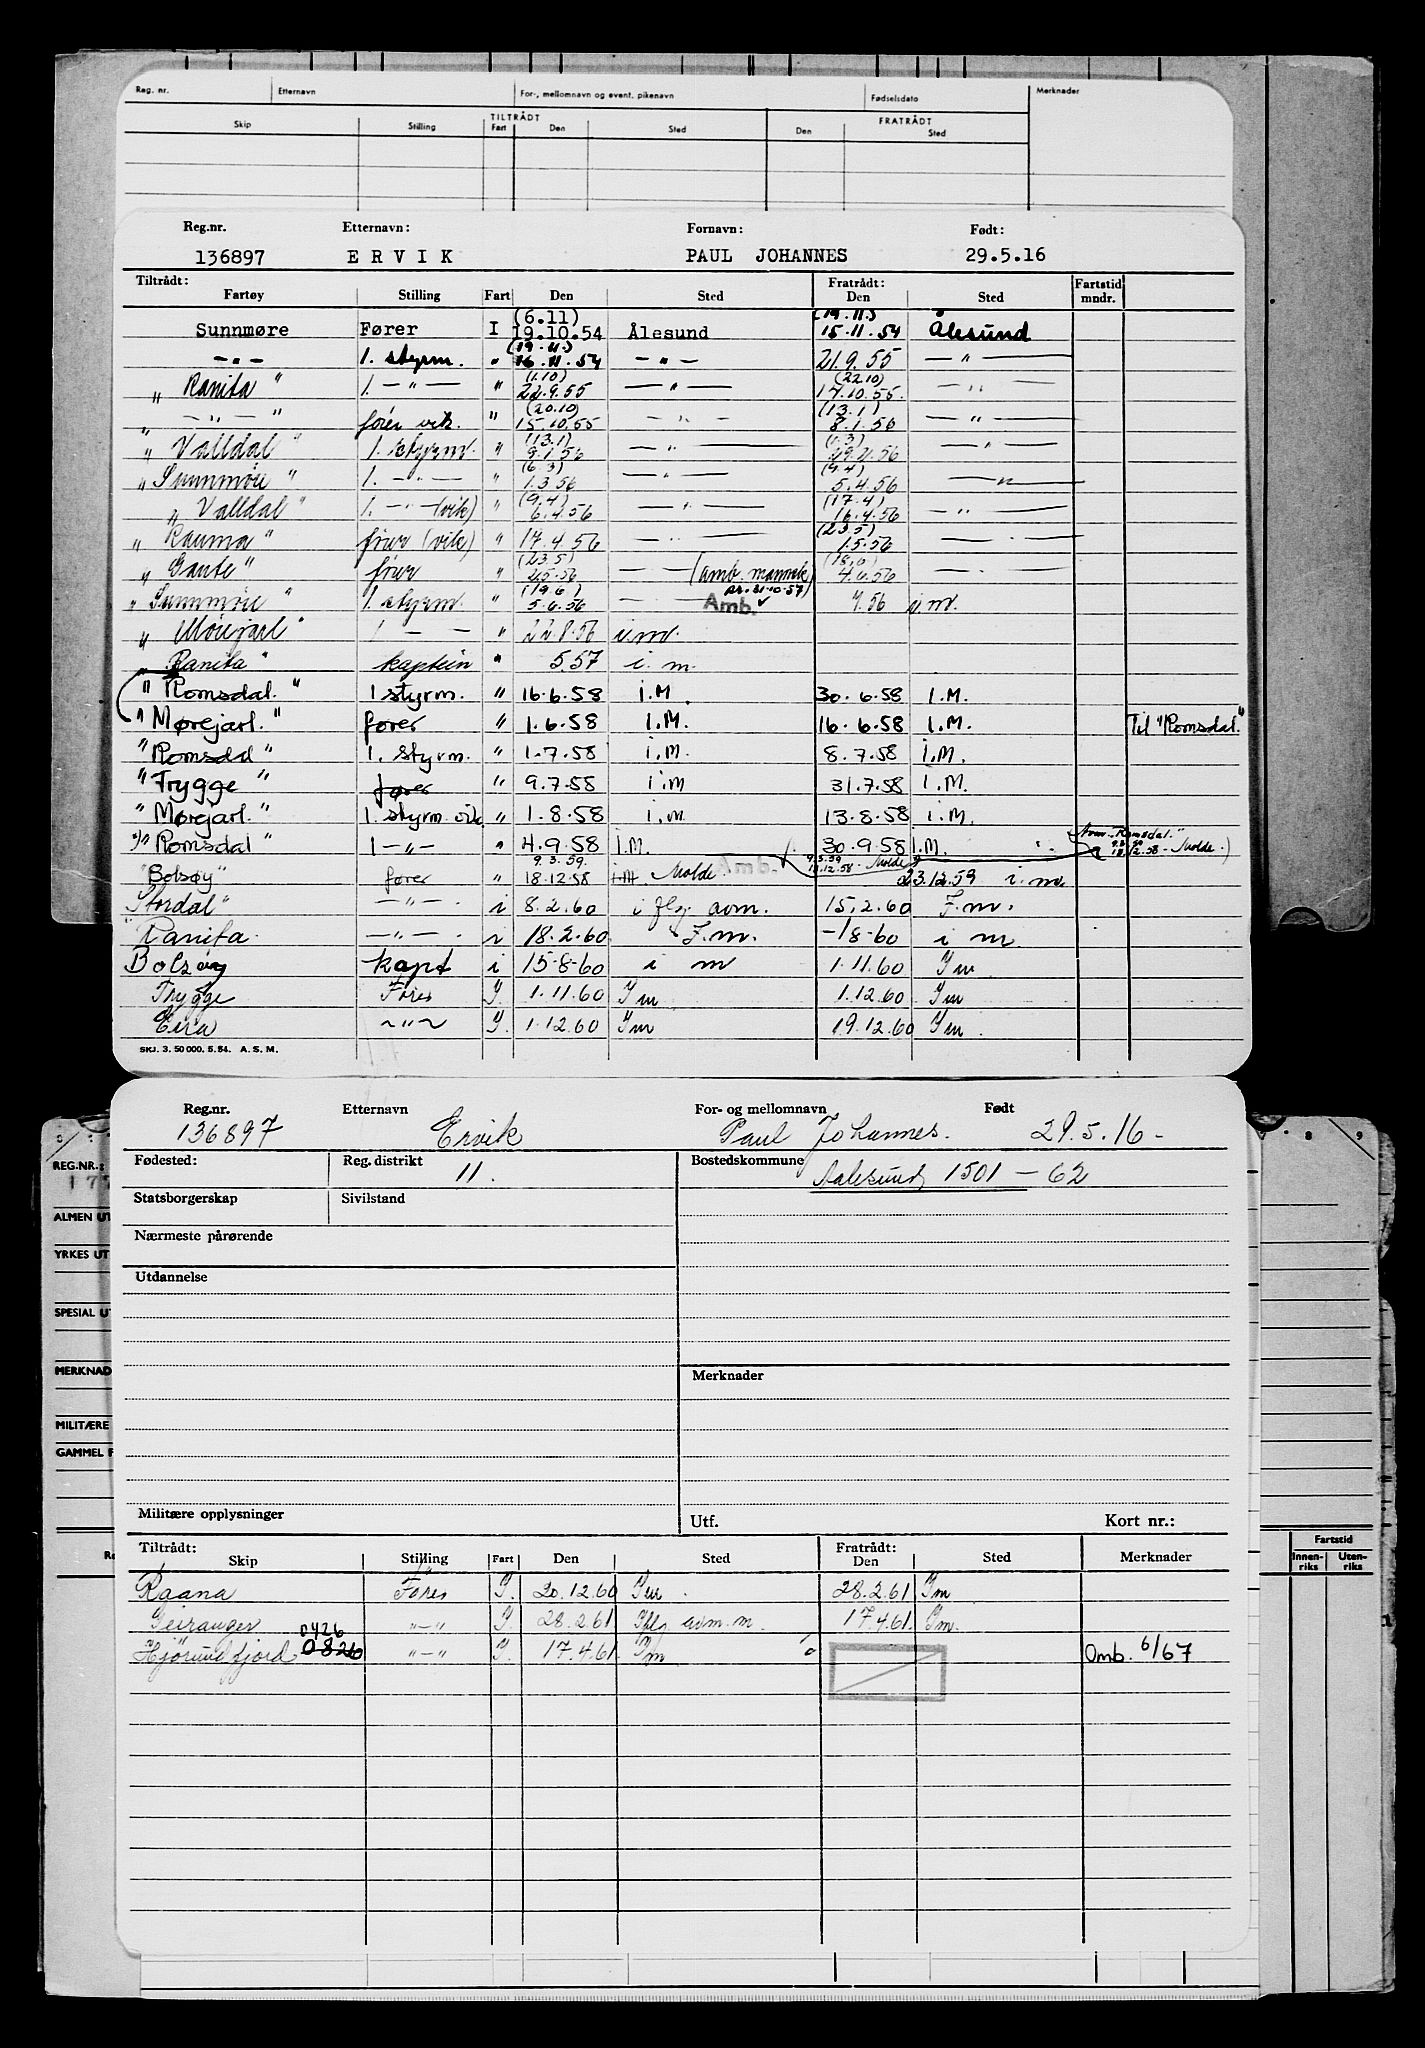 Reg. nr. Etternavn For-, mellomnavn og event. pikenavn Fødselsdato Merknader
TILTRÅDT FRATRÅDT
Skip Stilling Fart Den Sted Den Sted
Reg.nr. Etternavn: Fornavn: Født:
136897 E R V I K PAUL JOHANNES 29.5.16
Tiltrådt: Fratrådt: Fartstid
Fartøy Stilling Fart Den Sted Den Sted mndr.
(6.11) (19.11.)
Sunnmøre Fører I 19.10.54 Ålesund 15.11.54 Ålesund
(19.11.)
— " — 1. styrm. " 16.11.54 — " — 21.9.55 — " —
(1.10) (22.10)
" Ranita " 1. — " — " 22.9.55 — " — 17.10.55. — " —
(20.10) (13.1)
" — " — " fører vik. " 15.10.55 — " — 8.1.56 — " —
(13.1) (6.3)
" Valldal " 1. styrm. " 9.1.56 — " — 29.2.56 — " —
(6.3) (9.4)
" Sunnmøre " 1. — " — " 1.3.56 — " — 5.4.56 — " —
(9.4) (17.4)
" Valldal " 1. — " — (vik) " 6.4.56 — " — 16.4.56 — " —
(23.5)
" Rauma " fører (vik) " 17.4.56 — " — 1.5.56 — " —
(23.5)
" Gante " fører " 2.5.56 — (amb. mannsk. 4.6.56 — " —
(19.6) pr. 31.10.57)
" Sunnmøre " 1. styrm. " 5.6.56 — Amb. 7.56 i.m.
" Mørejarl " 1 — — " 22.8.56 i.m.
" Ranita " kaptein " 5.57 i. m.
" Romsdal. " 1 styrm. " 16.6.58 I.M. 30.6.58 I.M.
" Mørejarl. " fører " 1.6.58 I.M. 16.6.58 I.M. Til "Romsdal."
" Romsdal " 1. styrm. " 1.7.58 i.M. 8.7.58 i.M.
" Trygge " fører " 9.7.58 i.M 31.7.58 I.M.
" Mørejarl. " 1. styrm. vik. " 1.8.58 i.M 13.8.58 i.M.
" Romsdal " 1 — " — " 4.9.58 I.M. 30.9.58 I.M. "Romsdal." 18.12.58 - Molde.)
9.3.59. 9.3.59
"Bolsøy" fører " 18.12.58 i.M. Molde. Amb. 18.12.58 - Molde 23.12.59 i.m.
Stordal" — " — i 8.2.60 i flg. avm. 15.2.60 I.m.
"Ranita. — " — i 18.2.60 I.m. -18-60 i m
Bolsøy kapt i 15-8-60 i m 1.11.60 Im
Trygge Fører I. 1.11.60 Im 1.12.60 Im
Eira — " — I. 1.12.60 Im 19.12.60 Im.
SKJ. 3. 50 000. 5. 54. A. S. M.
Reg.nr. Etternavn For- og mellomnavn Født
136897 Ervik Paul Johannes. 29.5.16-
Fødested: Reg. distrikt 11. Bostedskommune Aalesund 1501 — 62
Statsborgerskap Sivilstand
Nærmeste pårørende
Utdannelse
Merknader
Militære opplysninger Utf. Kort nr.:
Tiltrådt: Fratrådt:
Skip Stilling Fart Den Sted Den Sted Merknader
Raana Fører I. 20.12.60 Im. 28.2.61 Im
Geiranger — " — I. 28.2.61 Iflg avm. m. 17.4.61 Im.
0426
Hjørundfjord 0820 — " — I. 17.4.61. Im Omb. 6/67
REG.NR.:
ALMEN UT
YRKES UT
SPESIAL UT
MERKNAD
MILITÆRE
GAMMEL F
8 9
Fartstid
Innenriks Utenriks